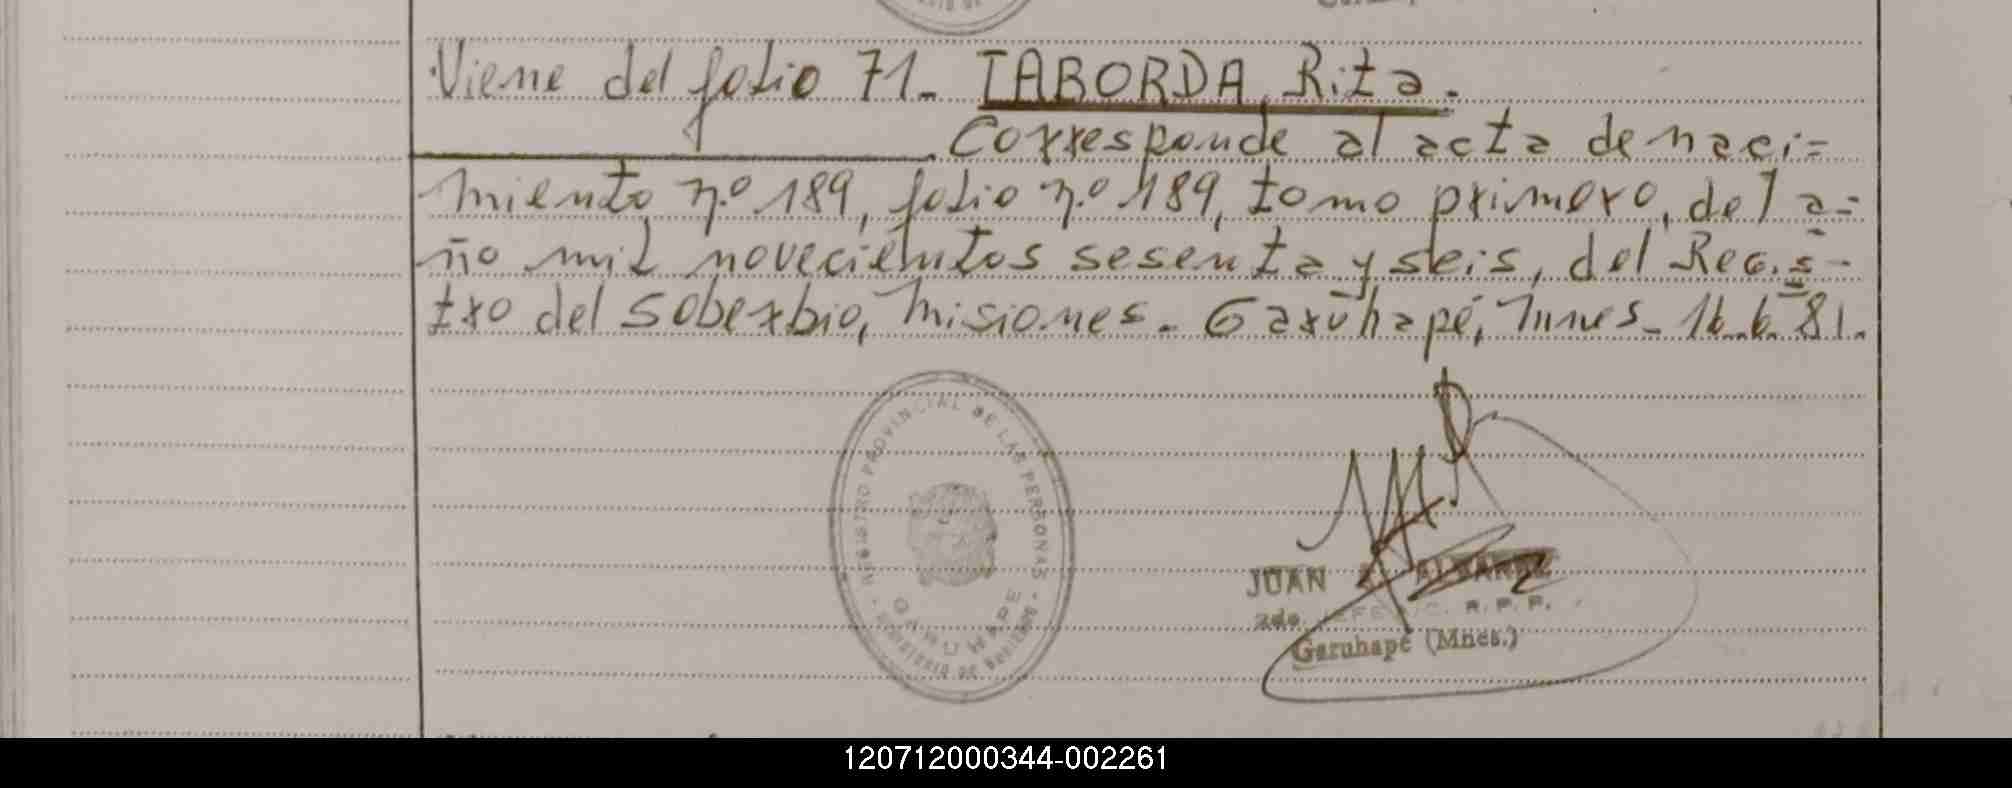 Viene del folio 71.- TABORDA, Rita.-
Corresponde al acta de naci=
miento n.º 189, folio n.º 189, tomo primero, del a=
ño mil novecientos sesenta y seis, del Regis-
tro del Soberbio, Misiones.- Garuhapé, Mnes.- 16.6.81.
REGISTRO PROVINCIAL DE LAS PERSONAS
GARUHAPE
PROVINCIA DE MISIONES
JUAN ALVAREZ
2do. JEFE R. P. P.
Garuhapé (Mnes.)
120712000344-002261